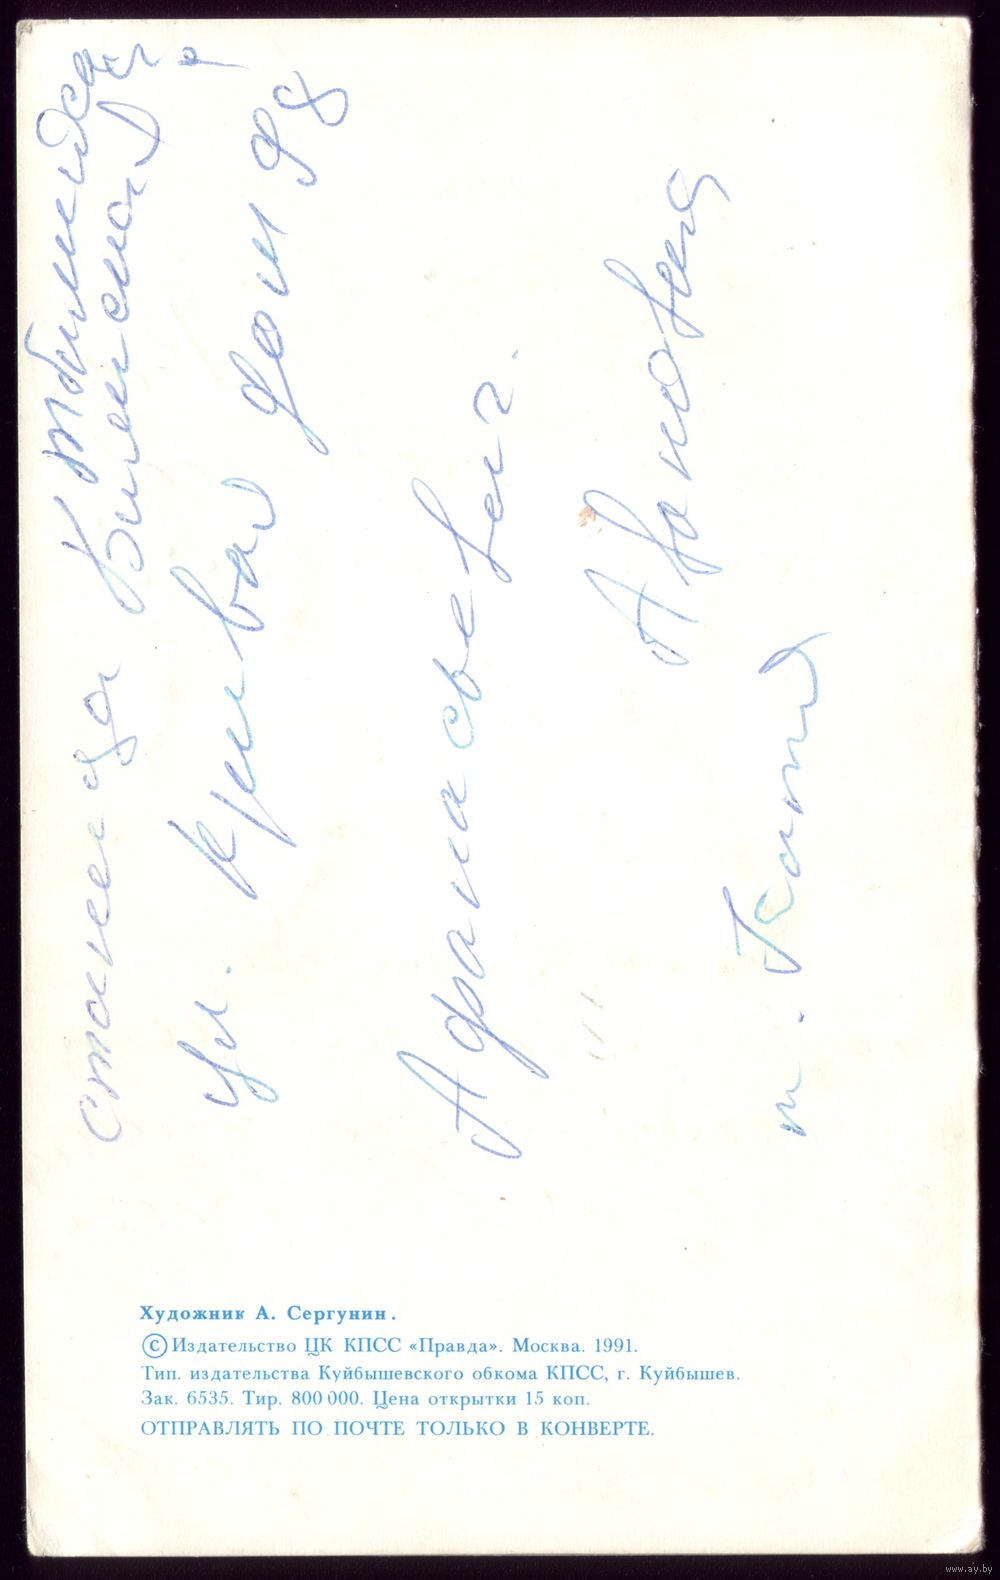 станица
ул. Кривая дом 98
Афанасьевич.
Антонина
т. Катя
Художник А. Сергунин.
© Издательство ЦК КПСС «Правда». Москва. 1991.
Тип. издательства Куйбышевского обкома КПСС, г. Куйбышев.
Зак. 6535. Тир. 800 000. Цена открытки 15 коп.
ОТПРАВЛЯТЬ ПО ПОЧТЕ ТОЛЬКО В КОНВЕРТЕ.
www.ay.by